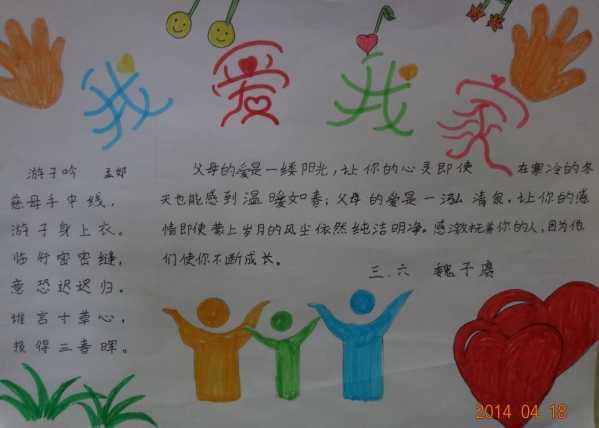 我爱我家
游子吟 孟郊
慈母手中线,
游子身上衣。
临行密密缝,
意恐迟迟归。
谁言寸草心,
报得三春晖。
父母的爱是一缕阳光,让你的心灵即使 在寒冷的冬
天也能感到温暖如春;父母的爱是一泓清泉,让你的感
情即使蒙上岁月的风尘依然纯洁明净。感激抚养你的人,因为他
们使你不断成长。
三.六 魏子
2014 04 18